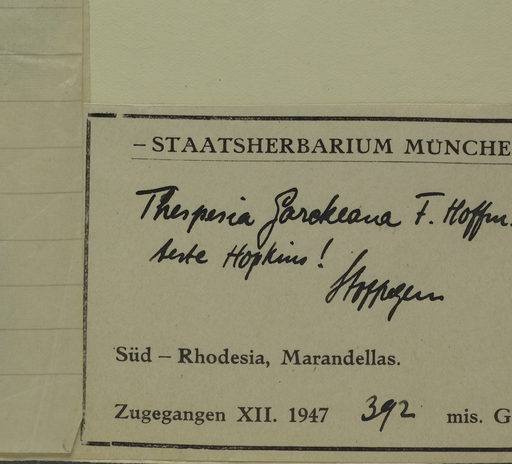 – STAATSHERBARIUM MÜNCHE
Thespesia Garckeana F. Hoffm.
teste Hopkins!
Süd – Rhodesia, Marandellas.
Zugegangen XII. 1947 392 mis. G